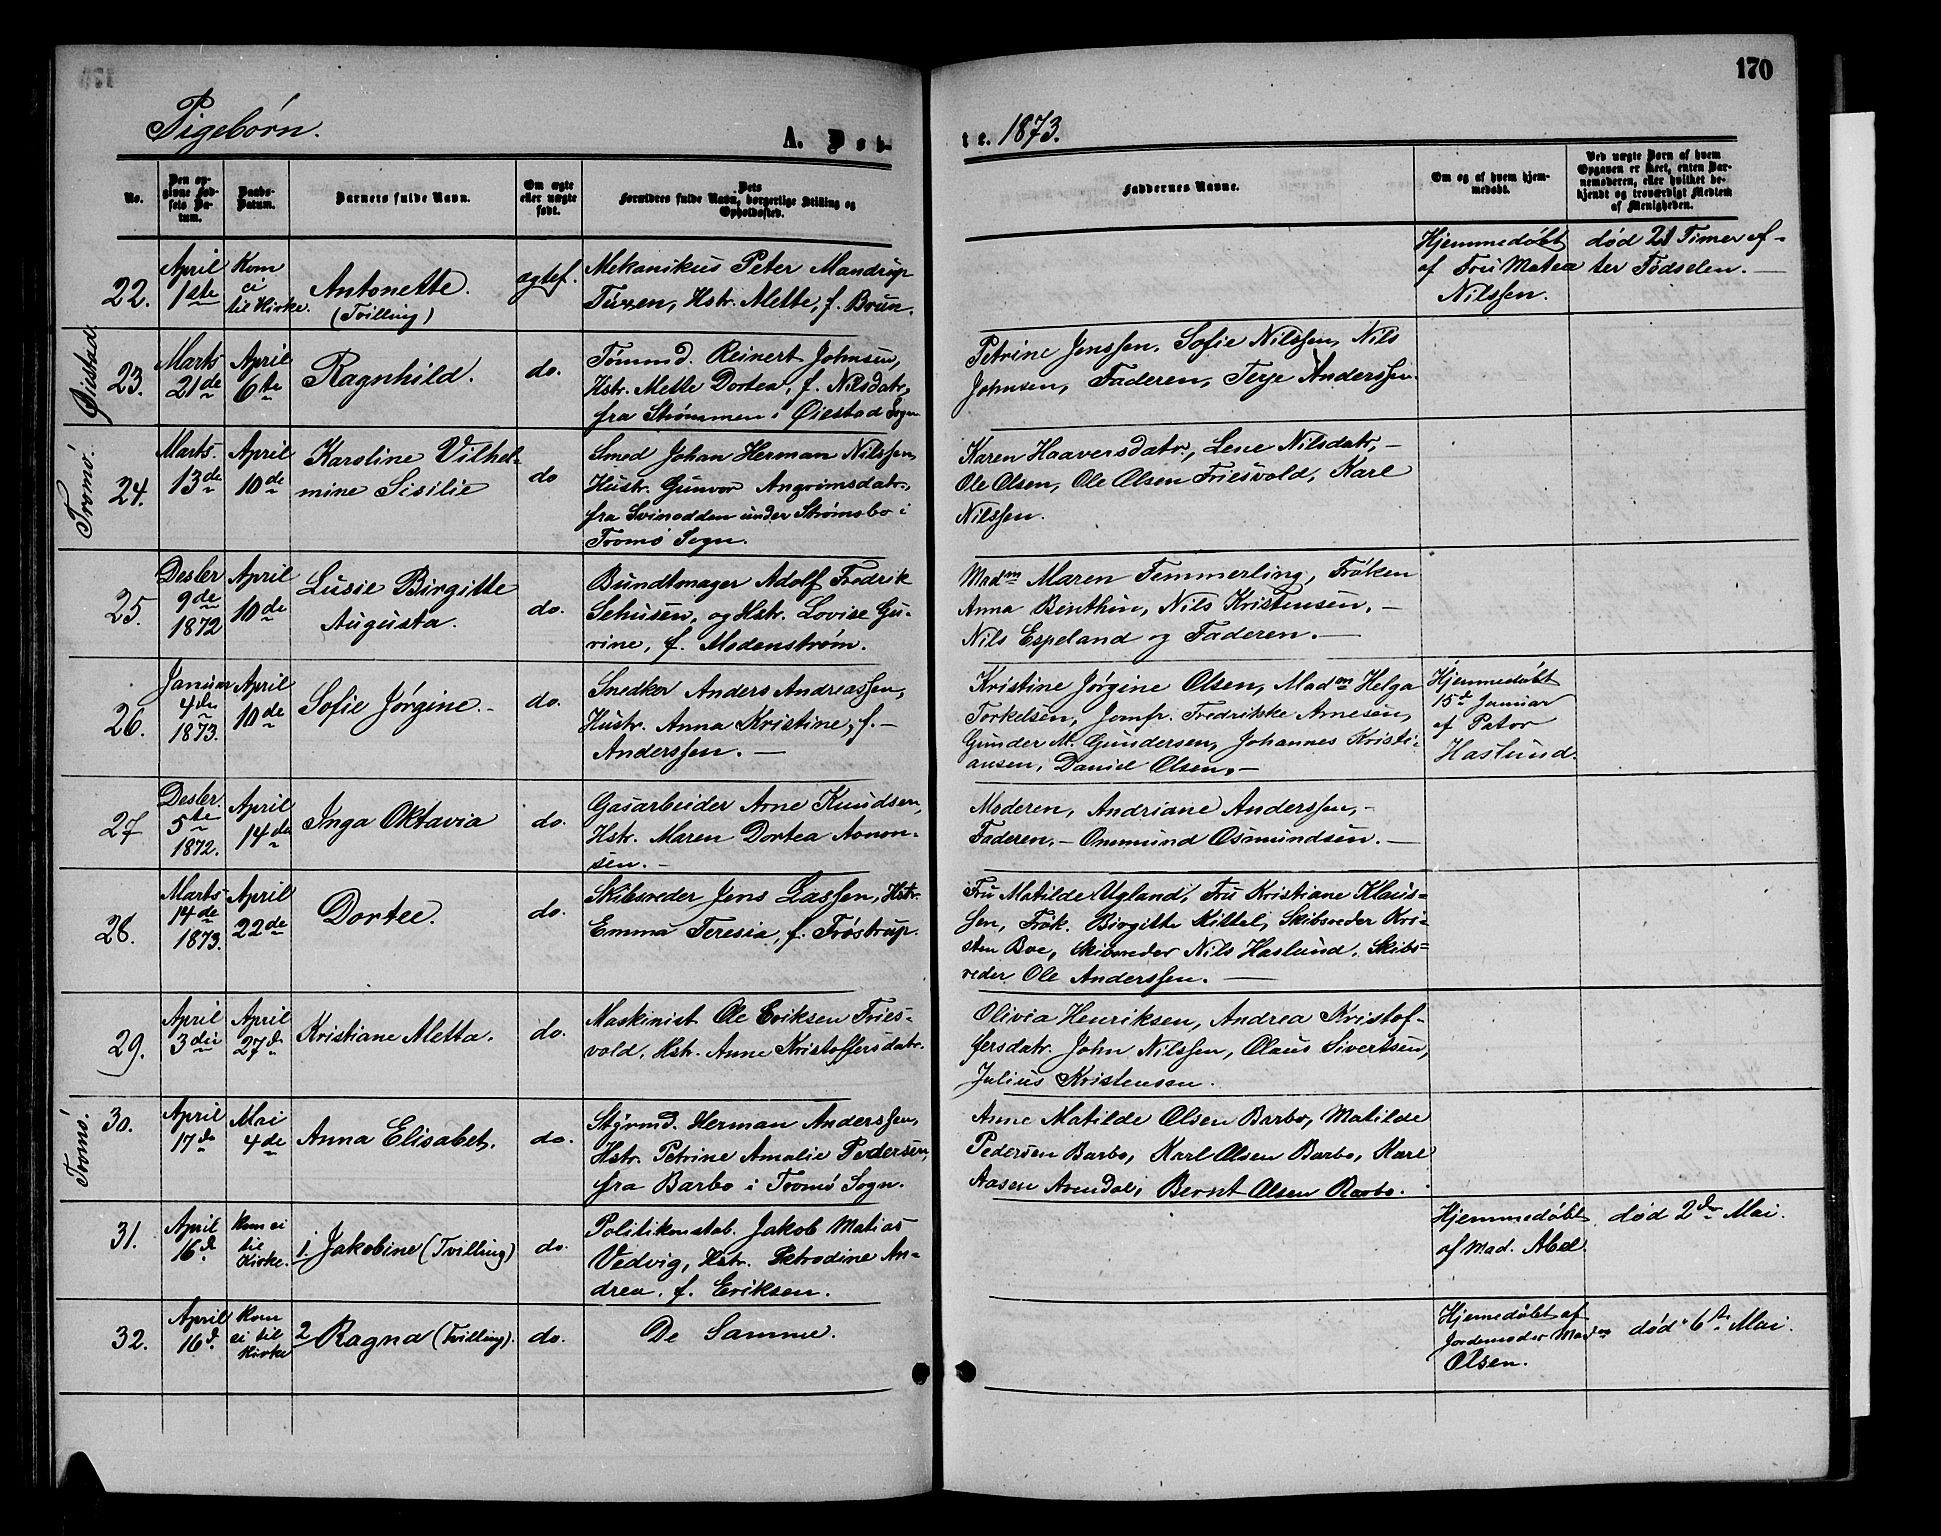 170
Pigebørn.
A. Døb-
te. 1873.
No.
Den op-
givne Fød-
sels Da-
tum.
Daabs-
Datum.
Barnets fulde Navn.
Om ægte
eller uægte
født.
Dets
Forældres fulde Navn, borgerlige Stilling og
Opholdssted.
Faddernes Navne.
Om og af hvem hjem-
medøbt.
Ved uægte Børn af hvem
Opgaven er skeet, enten Bar-
nemoderen, eller hvilket be-
kjendt og troværdigt Medlem
af Menigheden.
22.
April
1ste
Kom
ei
til Kirke.
Antonette.
(Tvilling)
ægtef.
Mekanikus Peter Mandrup
Tuxen, Hstr. Alette, f. Brun.
Hjemmedøbt
af Fru Matea
Nilssen.
død 21 Timer ef-
ter Fødselen. —
Øiestad.
23.
Marts
21de
April
6te
Ragnhild.
do.
Tømmd. Reinert Johnsen,
Hstr. Mette Dortea, f. Nilsdatr,
fra Strømmen i Øiestad Sogn
Petrine Jenssen, Sofie Nilssen, Nils
Johnsen, Faderen, Terje Anderssen.
Tromø.
24.
Marts.
13de
April
10de
Karoline Vilhel-
mine Sisilie
do
Smed Johan Herman Nilssen,
Hustr. Gunvor Angrimsdatr.,
fra Svinodden under Strømsbo i
Tromø Sogn.
Karen Haaversdatr, Lene Nilsdatr, —
Ole Olsen, Ole Olsen Friesvold, Karl
Nilssen.
25.
Desbr
9de
1872
April
10de
Lusie Birgitte
Augusta.
do.
Bundtmager Adolf Fredrik
Schusen, og Hstr. Lovise Gu-
rine, f. Modenstrøm.
Madm Maren Temmerling, Frøken
Anna Benthin, Nils Kristensen, —
Nils Espeland og Faderen. —
26.
Januar
4de
1873.
April
10de
Sofie Jørgine. -
do.
Snedker Anders Andreassen,
Hustr. Anna Kristine, f. —
Anderssen. —
Kristine Jørgine Olsen, Madm Helga
Torkelsen, Jomfr. Fredrikke Arnesen,
Gunder M. Gundersen, Johannes Kristi-
ansen, Daniel Olsen. —
Hjemmedøbt
15d Januar
af Pator
Haslund.
27
Desbr.
5te
1872.
April
14de
Inga Oktavia
do.
Gasarbeider Arne Knudsen,
Hstr. Maren Dortea Aanon-
sen. —
Moderen, Andriane Anderssen, -
Faderen, — Onsmund Osmundsen. —
28.
Marts
14de
1873.
April
22de
Dortee.
do.
Skibsreder Jens Lassen, Hstr.
Emma Teresia, f. Frøstrup.
Fru Matilde Ugland, Fru Kristiane Klaus-
sen, Frøk. Birgitte Kittel, Skibsreder Kri-
sten Boe, Skibsreder Nils Haslund, Skibs-
reder Ole Anderssen. —
29.
April
3die
April
27d
Kristiane Aletta.
do.
Maskinist Ole Eriksen Fries-
vold, Hstr. Anne Kristoffersdatr.
Olivia Henriksen, Andrea Kristof-
fersdatr. John Nilssen, Olaus Sivertsen,
Julius Kristensen.
Tromø.
30.
April
17d
Mai
4de
Anna Elisabet.
do.
Styrmd. Herman Anderssen,
Hstr. Petrine Amalie Pedersen,
fra Barbo i Tromø Sogn.
Anne Matilde Olsen Barbo, Matilde
Pedersen Barbo, Karl Olsen Barbo, Karl
Aasen Arendal, Bernt Olsen Barbo.
31.
April
16d
Kom ei
til
Kirke.
1. Jakobine (Tvilling)
do.
Politikonstab. Jakob Matias
Vedvig, Hstr. Petrodine An-
drea, f. Eriksen.
Hjemmedøbt
af Mad. Abel.
død 2den Mai.
32.
April
16d.
Kom
ei til
Kirke
2 Ragna (Tvilling).
do.
De Samme.
Hjemedøbt af
Jordemoder Madm
Olsen.
død 6te Mai.